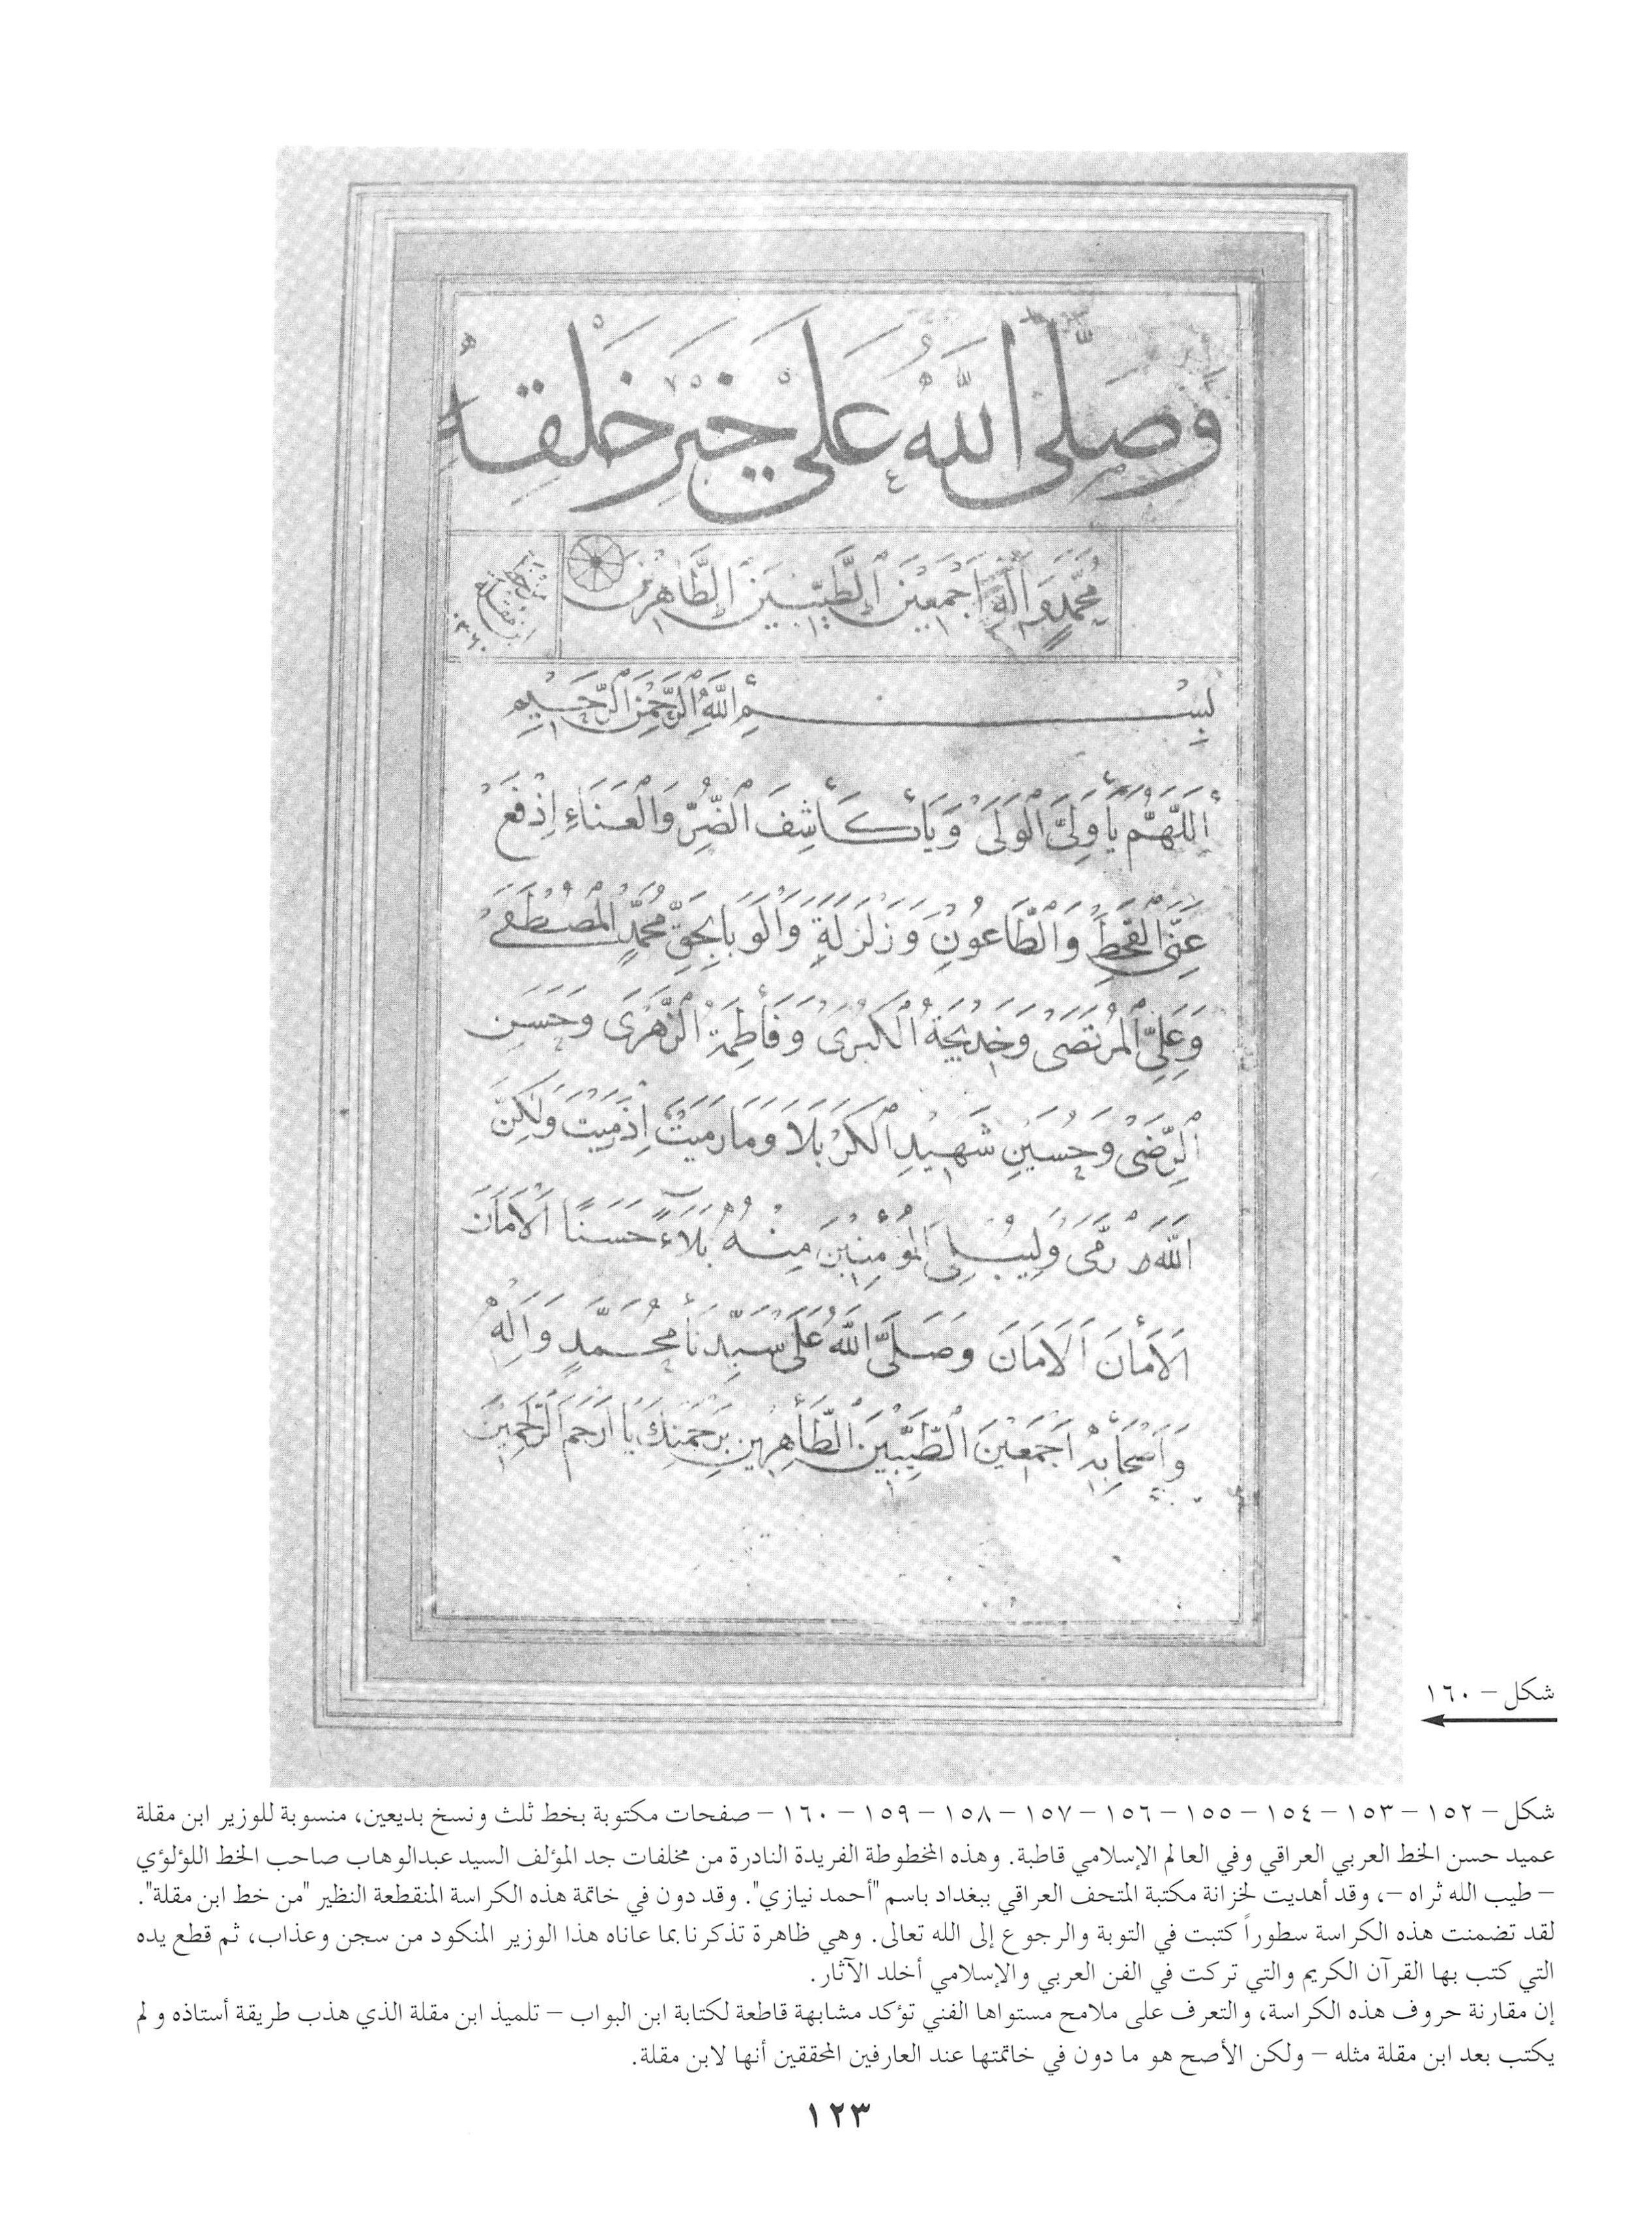 وَصَلَّى اللَّهُ عَلَى خَيْرِ خَلْقِهِ
مُحَمَّدٍ وَآلِهِ اَجْمَعِينَ الطَّيِّبِينَ الطَّاهِرِينَ
بِسْمِ اللَّهِ الرَّحْمَنِ الرَّحِيمِ
اَللَّهُمَّ يَا وَلِيَّ الْوَلَى وَيَا كَاشِفَ الضُّرِّ وَالْعَنَاءِ اِدْفَعْ
عَنِّي الْقَحْطَ وَالطَّاعُونِ وَزَلْزَلَةٍ وَالْوَبَا بِحَقِّ مُحَمَّدٍ الْمُصْطَفَى
وَعَلِيِّ الْمُرْتَضَى وَخَدِيجَةَ الْكُبْرَى وَفَاطِمَةَ الزَّهْرَى وَحَسَنِ
الرِّضَى وَحُسَيْنِ شَهِيدِ الْكَرْبَلَا وَمَا رَمَيْتَ اِذْ رَمَيْتَ وَلَكِنَّ
اللَّهَ رَمَى وَلِيُبْلِيَ الْمُؤْمِنِينَ مِنْهُ بَلَاءً حَسَنًا اَلْاَمَانَ
اَلْاَمَانَ اَلْاَمَانَ وَصَلَّى اللَّهُ عَلَى سَيِّدِنَا مُحَمَّدٍ وَآلِهِ
وَاَصْحَابِهِ اَجْمَعِينَ الطَّيِّبِينَ الطَّاهِرِينَ بِرَحْمَتِكَ يَا اَرْحَمَ الرَّاحِمِينَ
شكل – ١٦٠
شكل – ١٥٢ – ١٥٣ – ١٥٤ – ١٥٥ – ١٥٦ – ١٥٧ – ١٥٨ – ١٥٩ – ١٦٠ – صفحات مكتوبة بخط ثلث ونسخ بديعين، منسوبة للوزير ابن مقلة
عميد حسن الخط العربي العراقي وفي العالم الإسلامي قاطبة. وهذه المخطوطة الفريدة النادرة من مخلفات جد المؤلف السيد عبدالوهاب صاحب الخط اللؤلؤي
– طيب الله ثراه –، وقد أهديت لخزانة مكتبة المتحف العراقي ببغداد باسم "أحمد نيازي". وقد دون في خاتمة هذه الكراسة المنقطعة النظير "من خط ابن مقلة".
لقد تضمنت هذه الكراسة سطوراً كتبت في التوبة والرجوع إلى الله تعالى. وهي ظاهرة تذكرنا بما عاناه هذا الوزير المنكود من سجن وعذاب، ثم قطع يده
التي كتب بها القرآن الكريم والتي تركت في الفن العربي والإسلامي أخلد الآثار.
إن مقارنة حروف هذه الكراسة، والتعرف على ملامح مستواها الفني تؤكد مشابهة قاطعة لكتابة ابن البواب – تلميذ ابن مقلة الذي هذب طريقة أستاذه ولم
يكتب بعد ابن مقلة مثله – ولكن الأصح هو ما دون في خاتمتها عند العارفين المحققين أنها لابن مقلة.
١٢٣